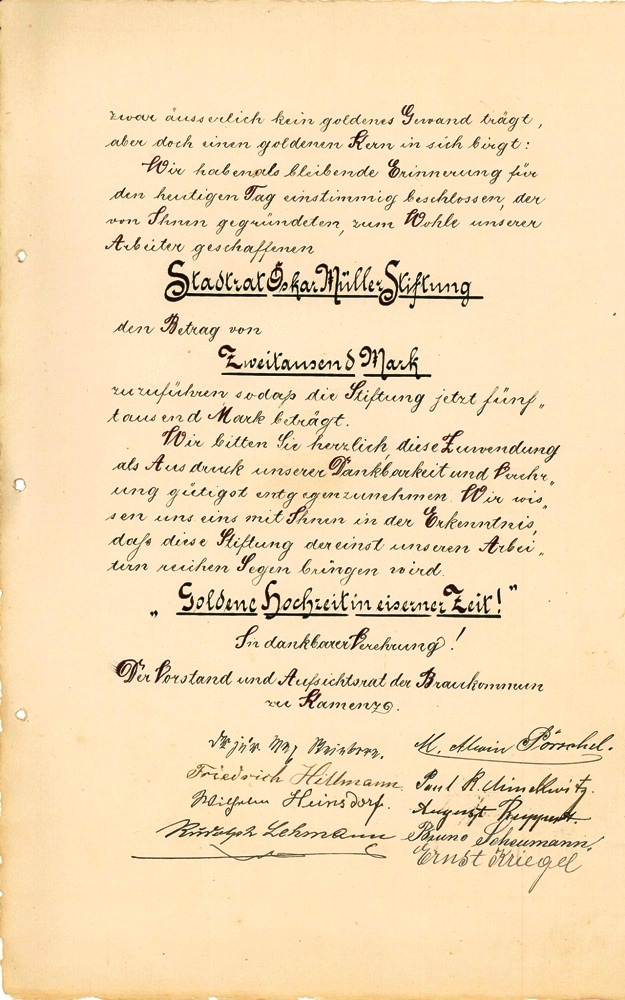 zwar äusserlich kein goldenes Gewand trägt,
aber doch einen goldenen Kern in sich birgt:
Wir haben als bleibende Erinnerung für
den heutigen Tag einstimmig beschlossen, der
von Ihnen gegründeten, zum Wohle unserer
Arbeiter geschaffenen
Stadtrat Oskar Müller Stiftung
den Betrag von
Zweitausend Mark
zuzuführen sodaß die Stiftung jetzt fünf„
tausend Mark beträgt.
Wir bitten Sie herzlich, diese Zuwendung
als Ausdruck unserer Dankbarkeit und Verehr„
ung gütigst entgegenzunehmen. Wir wis„
sen uns eins mit Ihnen in der Erkenntnis,
daß diese Stiftung dereinst unseren Arbei„
tern reichen Segen bringen wird.
„Goldene Hochzeit in eiserner Zeit!"
In dankbarer Verehrung!
Der Vorstand und Aufsichtsrat der Braukommun
zu Kamenz.
M. Alwin Pörschel.
Friedrich Hillmann.
Paul R.
Wilhelm Heinsdorf.
August Ruppert.
Rudolph Lehmann
Bruno Scheumann.
Ernst Kriegel